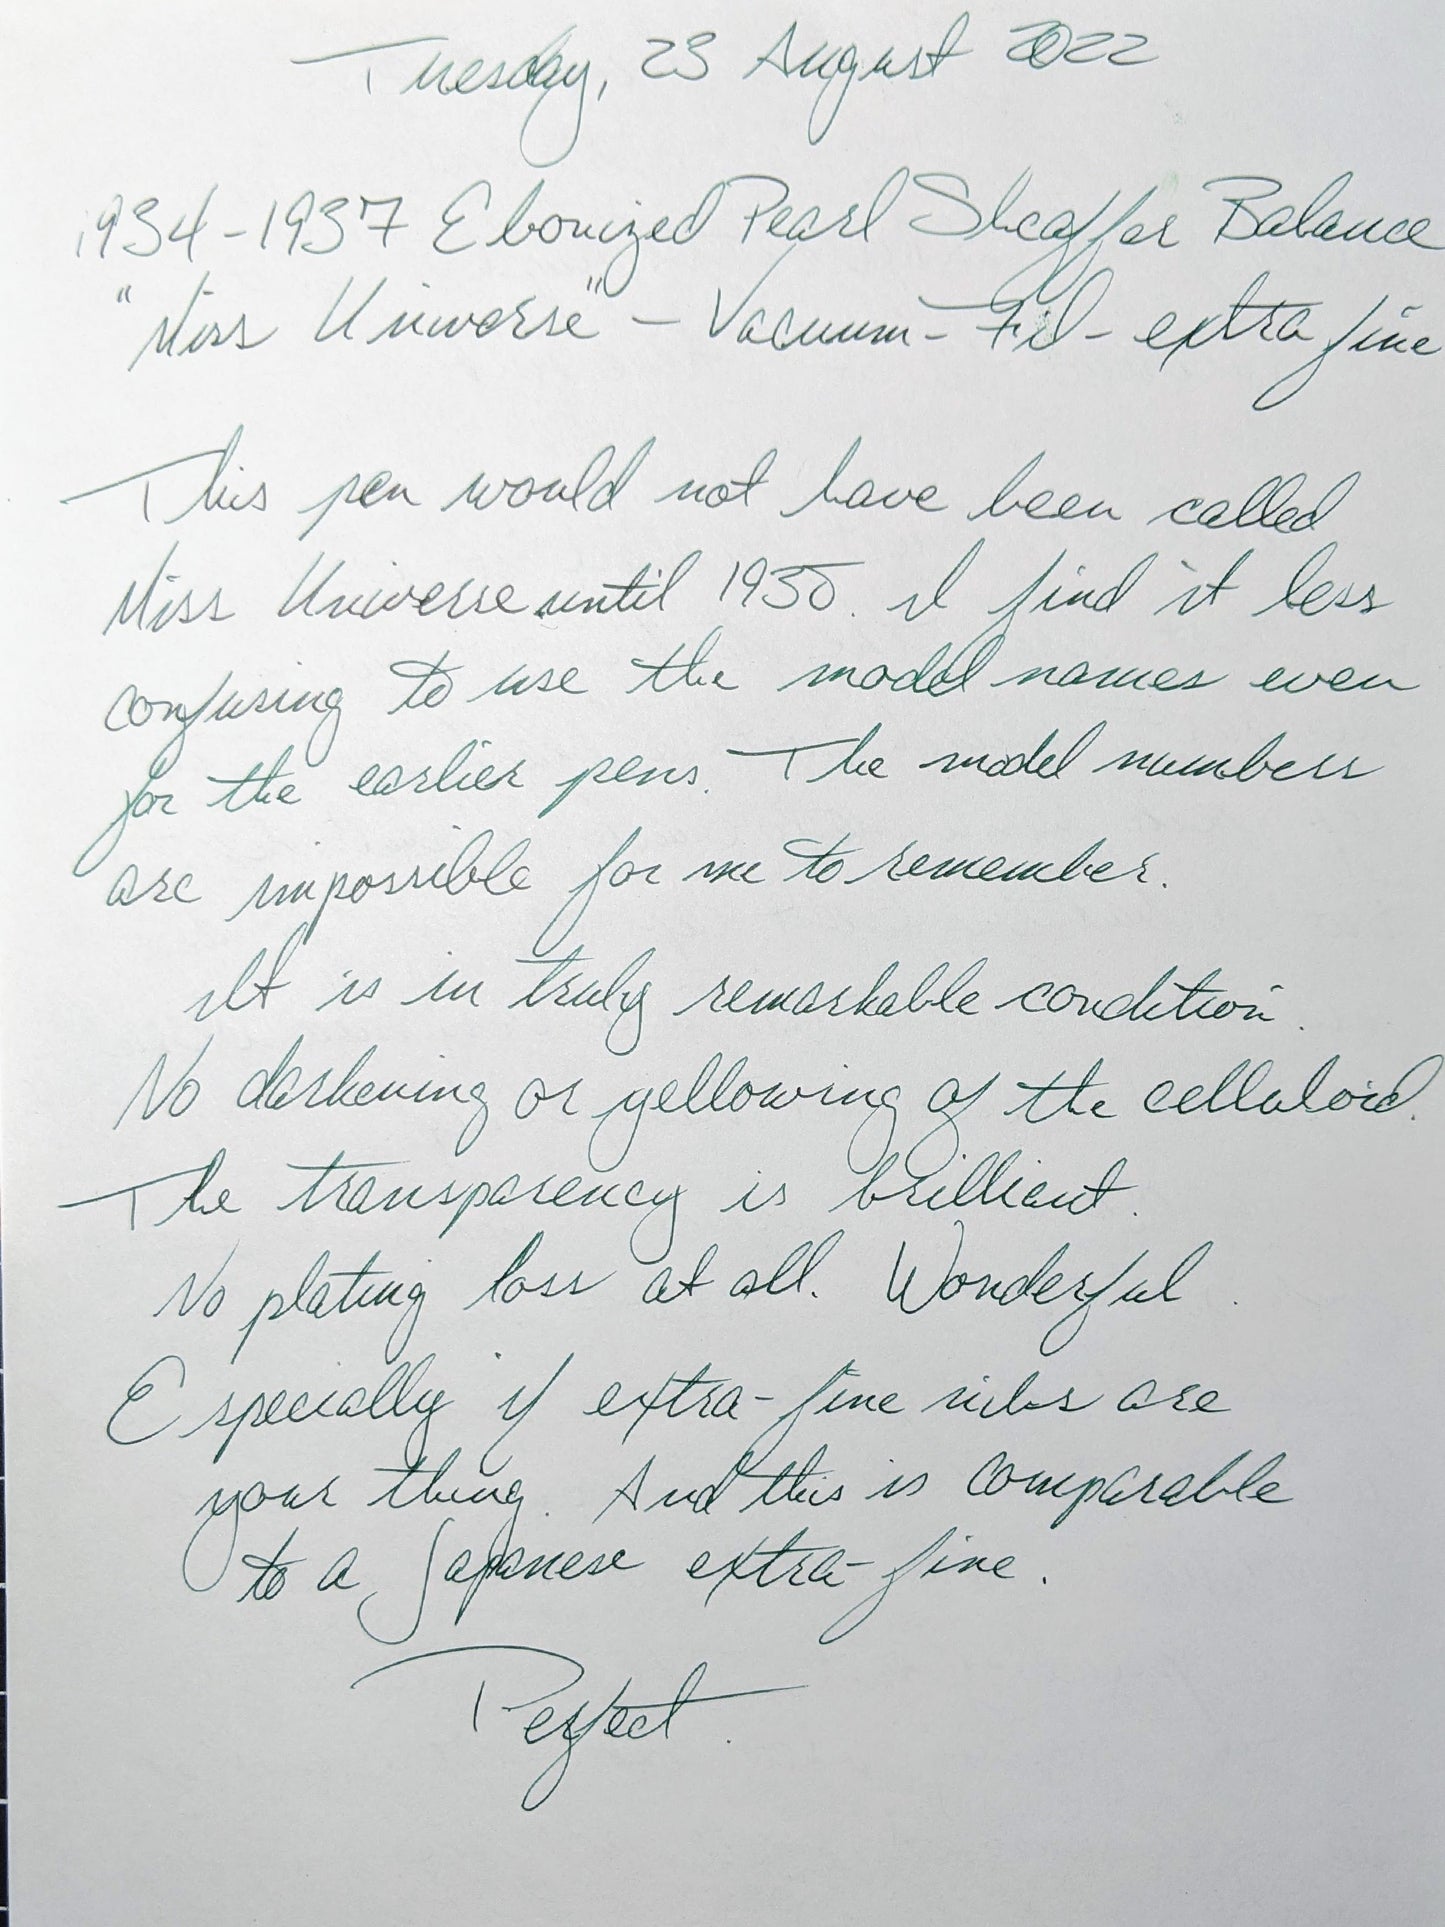 Tuesday, 23 August 2022
1934-1937 Ebonized Pearl Sheaffer Balance
"Miss Universe" - Vacuum-Fil - extra fine
This pen would not have been called
Miss Universe until 1935. I find it less
confusing to use the model names even
for the earlier pens. The model numbers
are impossible for me to remember.
It is in truly remarkable condition.
No darkening or yellowing of the celluloid.
The transparency is brilliant.
No plating loss at all. Wonderful.
Especially if extra-fine nibs are
your thing. And this is comparable
to a Japanese extra-fine.
Perfect.